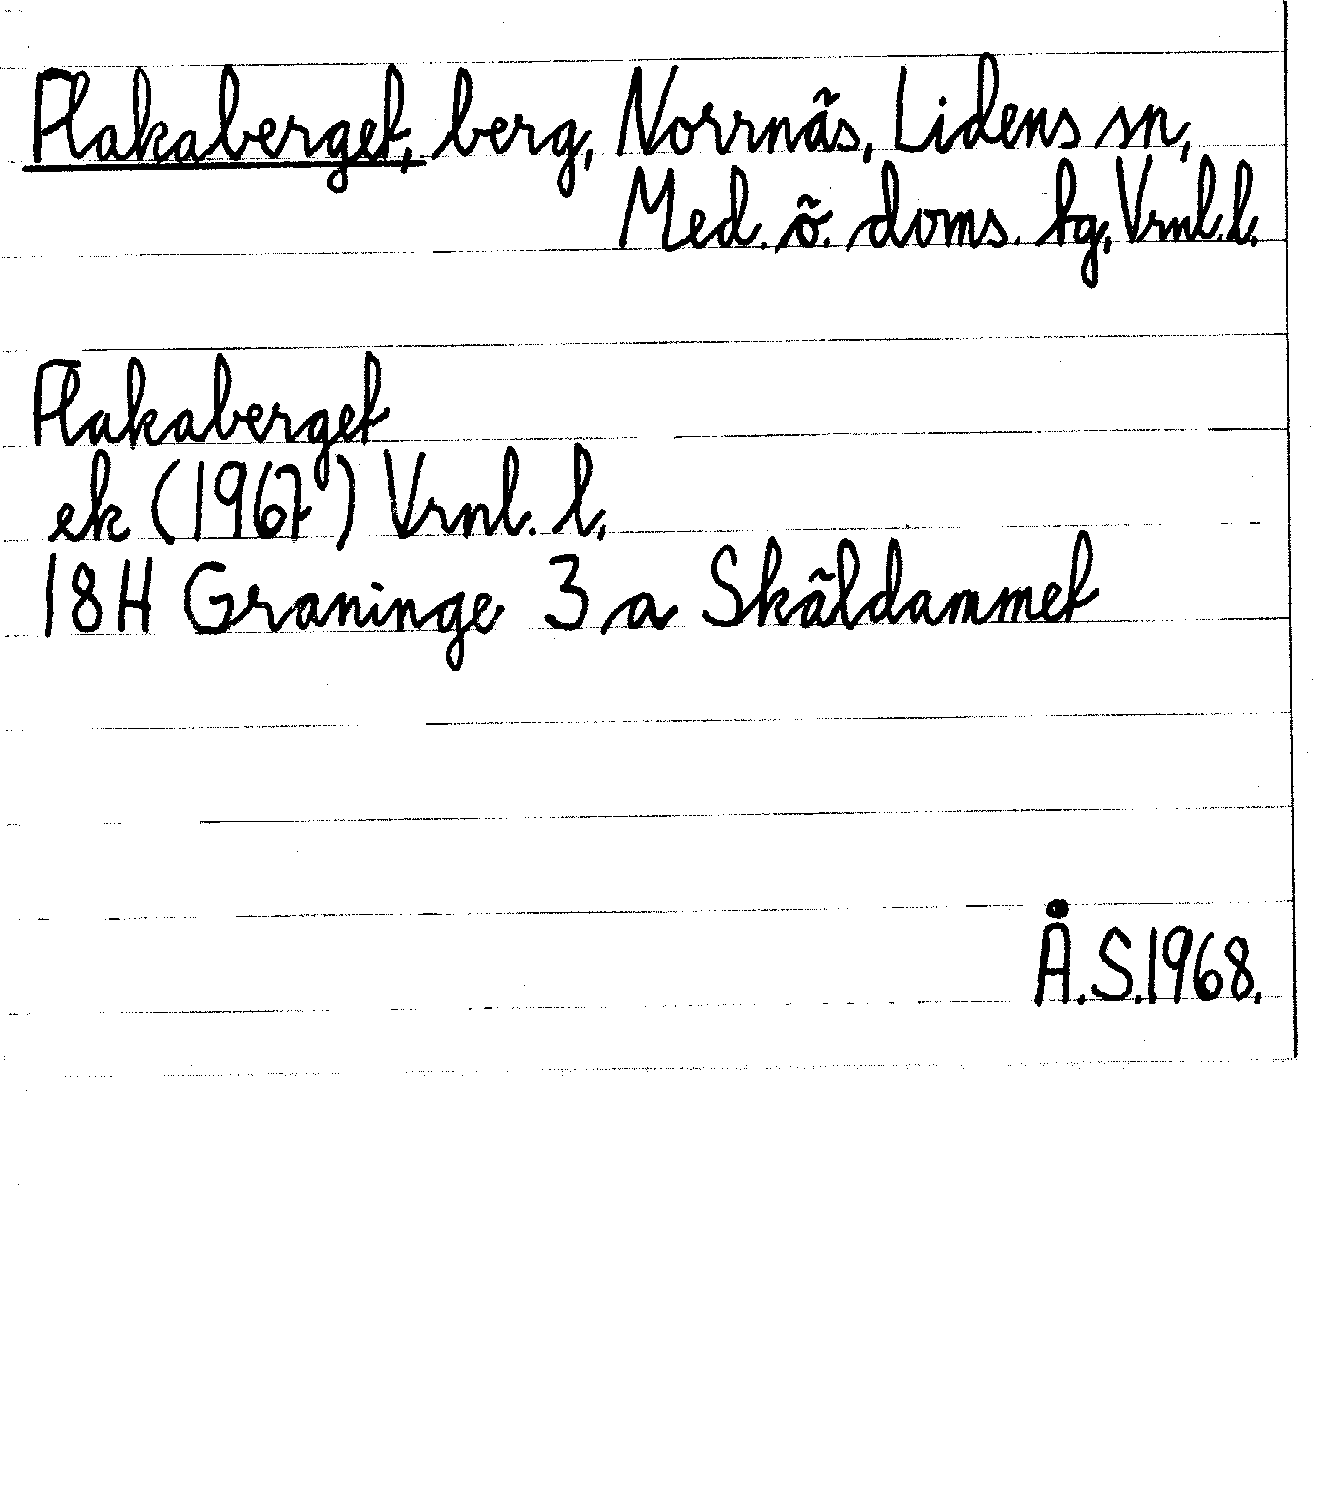 Flakaberget, berg, Norrnäs, Lidens sn,
Med. ö. doms. tg, Vrnl. l.
Flakaberget
ek (1967) Vrnl. l.
18H Graninge 3 a Skäldammet
Å.S.1968.